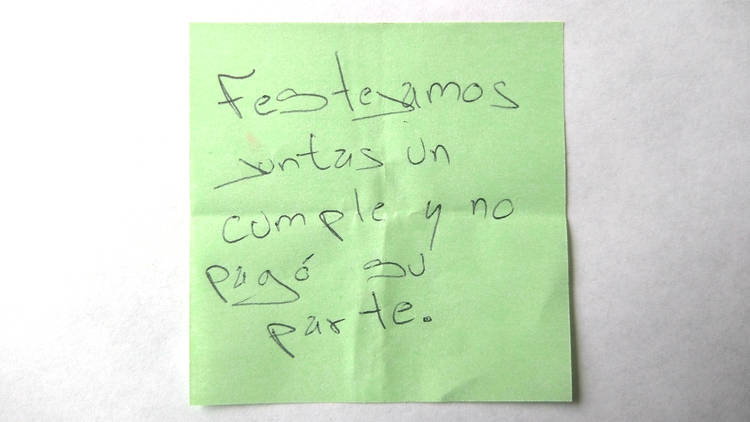 Festejamos
juntas un
cumple y no
pagó su
parte.